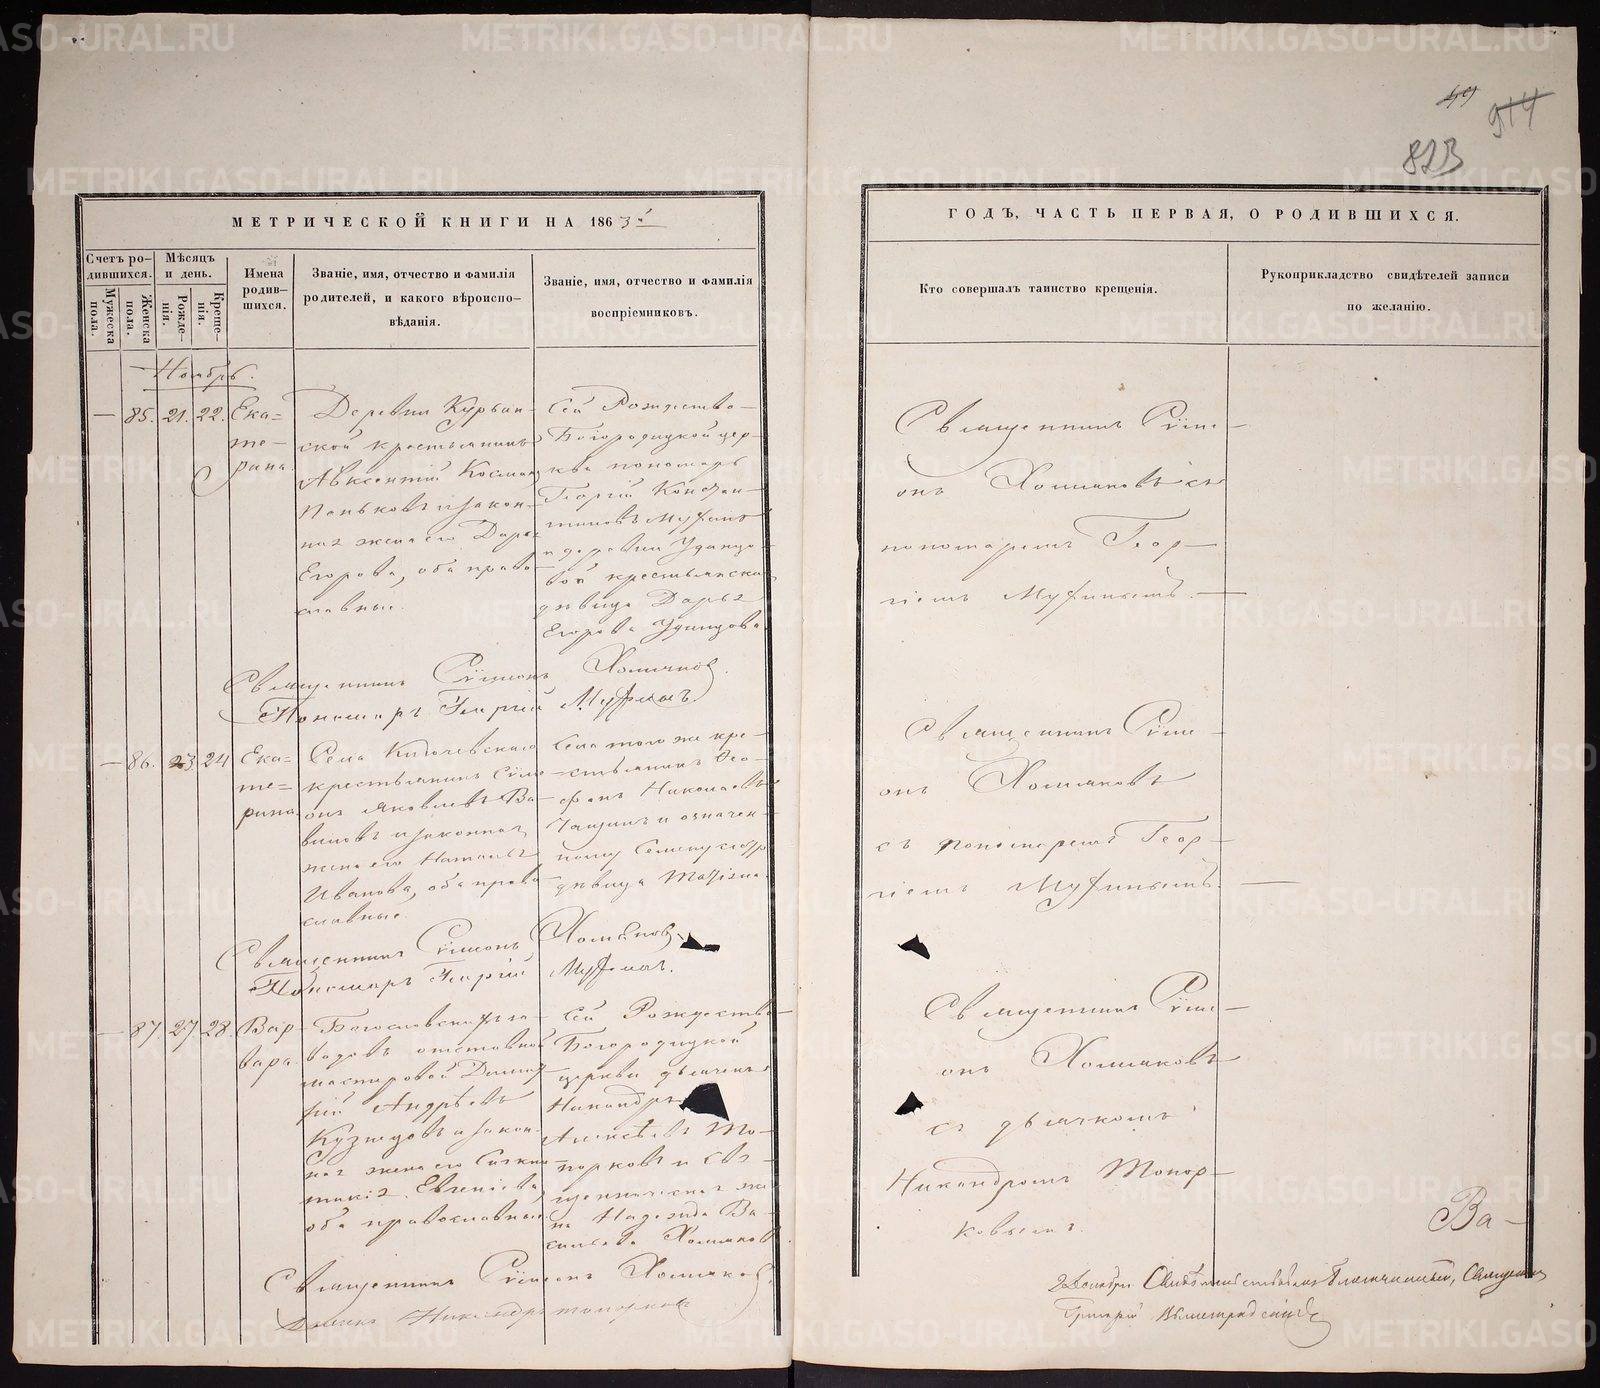 49
914
823
МЕТРИЧЕСКОЙ КНИГИ НА 1863й
ГОДЪ, ЧАСТЬ ПЕРВАЯ, О РОДИВШИХСЯ.
Счетъ ро-
дившихся.
Мѣсяцъ
и день.
Мужеска
пола.
Женска
пола.
Рожде-
нія.
Креще-
нія.
Имена
родив-
шихся.
Званіе, имя, отчество и фамилія
родителей, и какого вѣроиспо-
вѣданія.
Званіе, имя, отчество и фамилія
воспріемниковъ.
Кто совершалъ таинство крещенія.
Рукоприкладство свидѣтелей записи
по желанію.
Ноябрь.
— 85. 21. 22.
Ека=
те-
рина.
Деревни Курьин-
ской крестьянинъ
Авксентій Космин
Паньковъ и закон-
ная жена его Дарья
Егорова, оба право-
славные.
Сей Рождество-
Богородицкой цер-
кви пономарь
Георгій Констан-
тиновъ Муфинъ
и деревни Удинцо-
вой крестьянска
дѣвица Дарья
Егорова Удинцова.
Священникъ Сѵме-
онъ Холмяковъ съ
пономаремъ Геор-
гіемъ Муфинымъ.
Священникъ Сѵмеонъ Холмяковъ.
Пономарь Георгій Муфинъ.
— 86. 23. 24
Ека=
те=
рина
Села
крестьянинъ Сѵме
онъ Яковлевъ Ва-
виловъ и законная
жена его Наталья
Иванова, оба право
славные.
Села того же кре-
стьянинъ Ѳео-
фанъ Николаевъ
и означен-
ному Семену сестра
дѣвица
Священникъ Сѵме-
онъ Холмяковъ
съ пономаремъ Геор-
гіемъ Муфинымъ.
Священникъ Сѵмеонъ Холмяковъ.
Пономарь Георгій Муфинъ.
— 87. 27. 28.
Вар-
вара.
Богословскихъ за-
водовъ отставной
мастеровой Димит
рій Андрѣевъ
Кузнецовъ и закон-
ная жена его Синкли
тикія Евгеніева,
оба православные.
Сей Рождество-
Богородицкой
церкви дьячекъ
Никандръ
Алексѣевъ То-
порковъ и свя-
щенническая же-
на Надежда Ва-
сильева Холмяков
Священникъ Сѵме-
онъ Холмяковъ
съ дьячкомъ
Никандромъ Топор-
ковымъ.
Священникъ Сѵмеонъ Холмяковъ.
Дьячекъ Никандръ Топорковъ
Ва-
2 Декабря Свидѣтельствовалъ Благочинный, Священникъ
Григорій